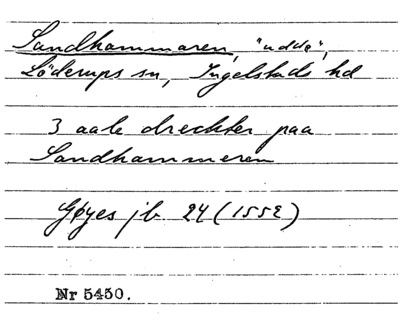 Sandhammaren, "udde",
Löderups sn, Ingelstads hd
3 aale dreckter paa
Sandhammeren
Gøyes jb 24 (1552)
Nr 5450.